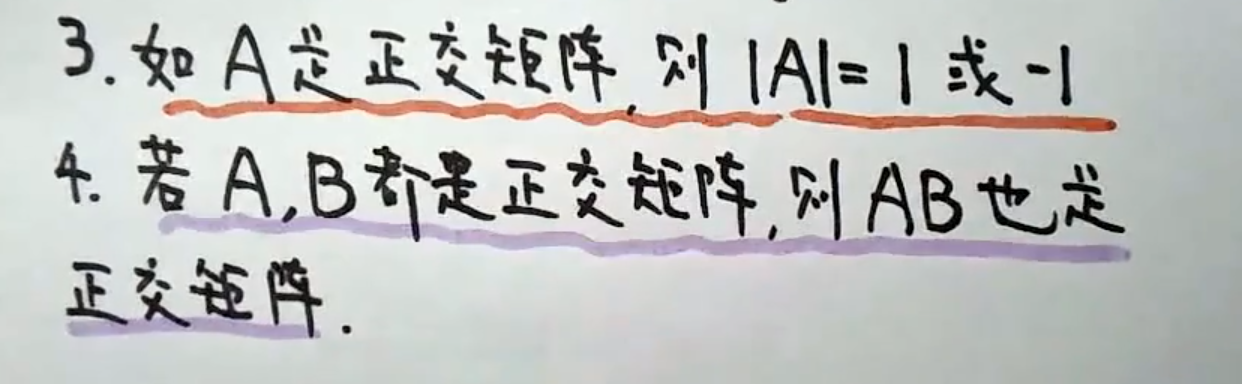 3. 如 A 是正交矩阵, 则 |A|= 1 或 -1
4. 若 A, B 都是正交矩阵, 则 AB 也是
正交矩阵.